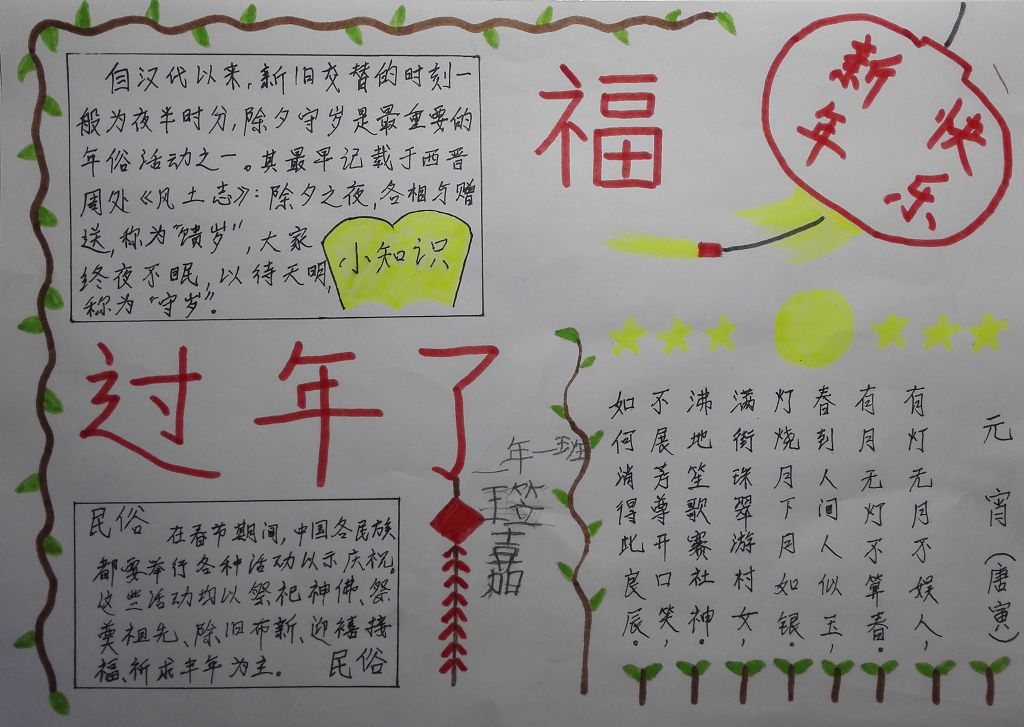 自汉代以来,新旧交替的时刻一
般为夜半时分,除夕守岁是最重要的
年俗活动之一。其最早记载于西晋
周处《风土志》:除夕之夜,各相与赠
送,称为"馈岁",大家
终夜不眠,以待天明,
称为"守岁"。
小知识
福
新年
快乐
过年了
一年一班
嘉
民俗
在春节期间,中国各民族
都要举行各种活动以示庆祝。
这些活动均以祭祀神佛、祭
奠祖先、除旧布新、迎禧接
福、祈求丰年为主。
民俗
元宵(唐寅)
有灯无月不娱人,
有月无灯不算春。
春到人间人似玉,
灯烧月下月如银。
满街珠翠游村女,
沸地笙歌赛社神。
不展芳尊开口笑,
如何消得此良辰。